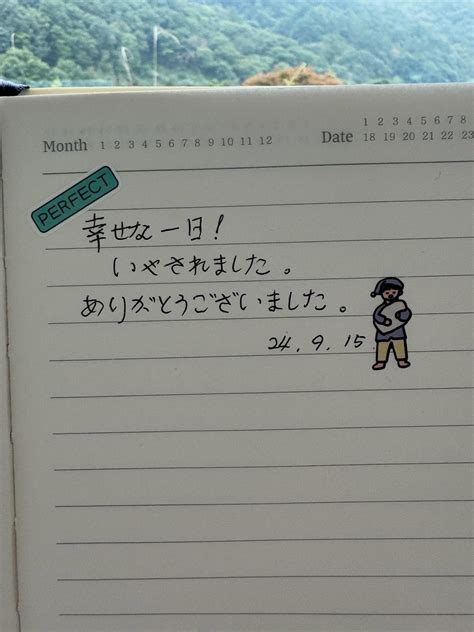 Month 1 2 3 4 5 6 7 8 9 10 11 12
Date 1 2 3 4 5 6 7 8
18 19 20 21 22 23
PERFECT
幸せな一日！
いやされました。
ありがとうございました。
24.9.15